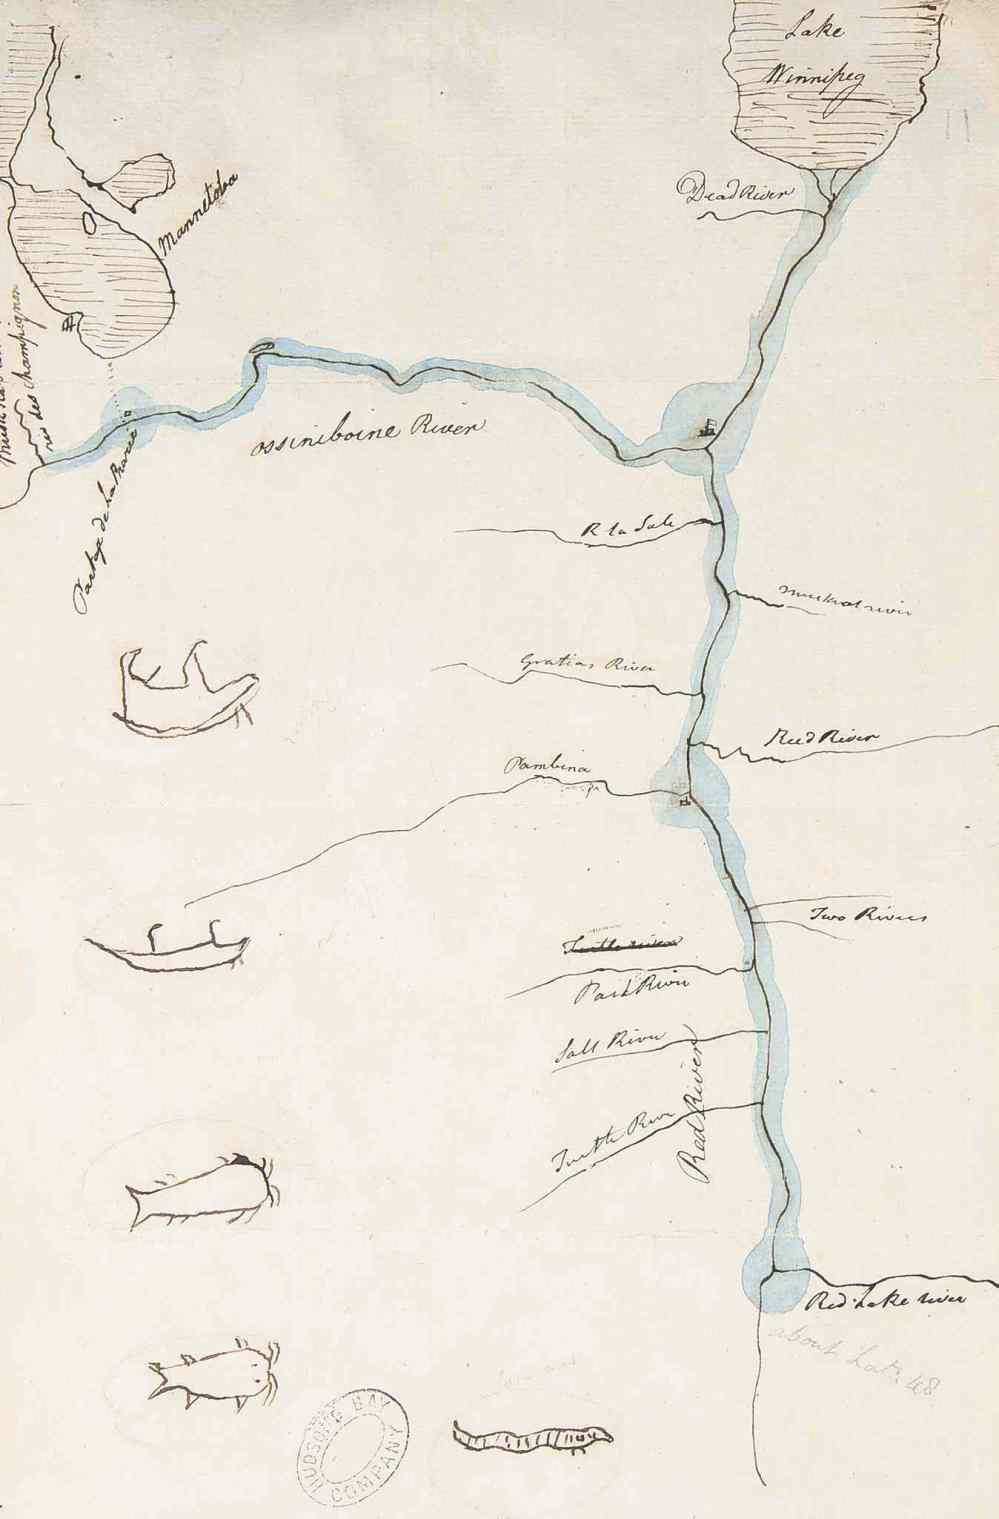 Lake
Winnipeg
11
Dead River
Mannetoba
ris des champignon
Ossiniboine River
Portage de La Prairie
R la Sale
Muskrat river
Gratias River
Reed River
Pambina
Two Rivers
Turtle river
Park River
Salt River
Turtle River
Red River
Red Lake river
about Lat. 48
HUDSON'S BAY
COMPANY